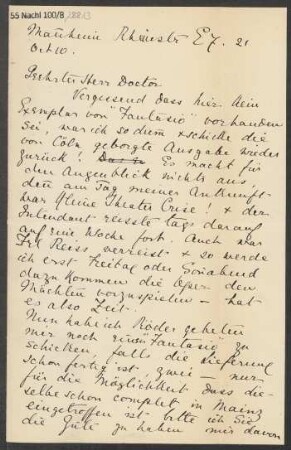 55 Nachl 100/B,
Mannheim Rheinstr E7. 21
Oct 10.
Geehrter Herr Doctor
Vergessend dass hier kein
Exemplar von "Fantasio" vorhanden
sei, war ich so dumm & schickte die
von Cöln geborgte Ausgabe wieder
zurück! Es macht für
den Augenblick nichts aus,
denn am Tag meiner Ankunft
war kleine Theater Crise! & der
Intendant reisste tags darauf
auf eine Woche fort. Auch war
Frl Reiss verreist & so werde
ich erst Freitag oder Sonnabend
dazu kommen die Oper den
Mächten vorzuspielen – hat
es also Zeit.
Nun habe ich Röder gebeten
mir noch "Fantasio" zu
schicken, falls die Lieferung
schon fertig ist, – nur
für die Möglichkeit dass die
selbe schon complet in Mainz
eingetroffen ist bitte ich Sie
die Güte zu haben mir davon